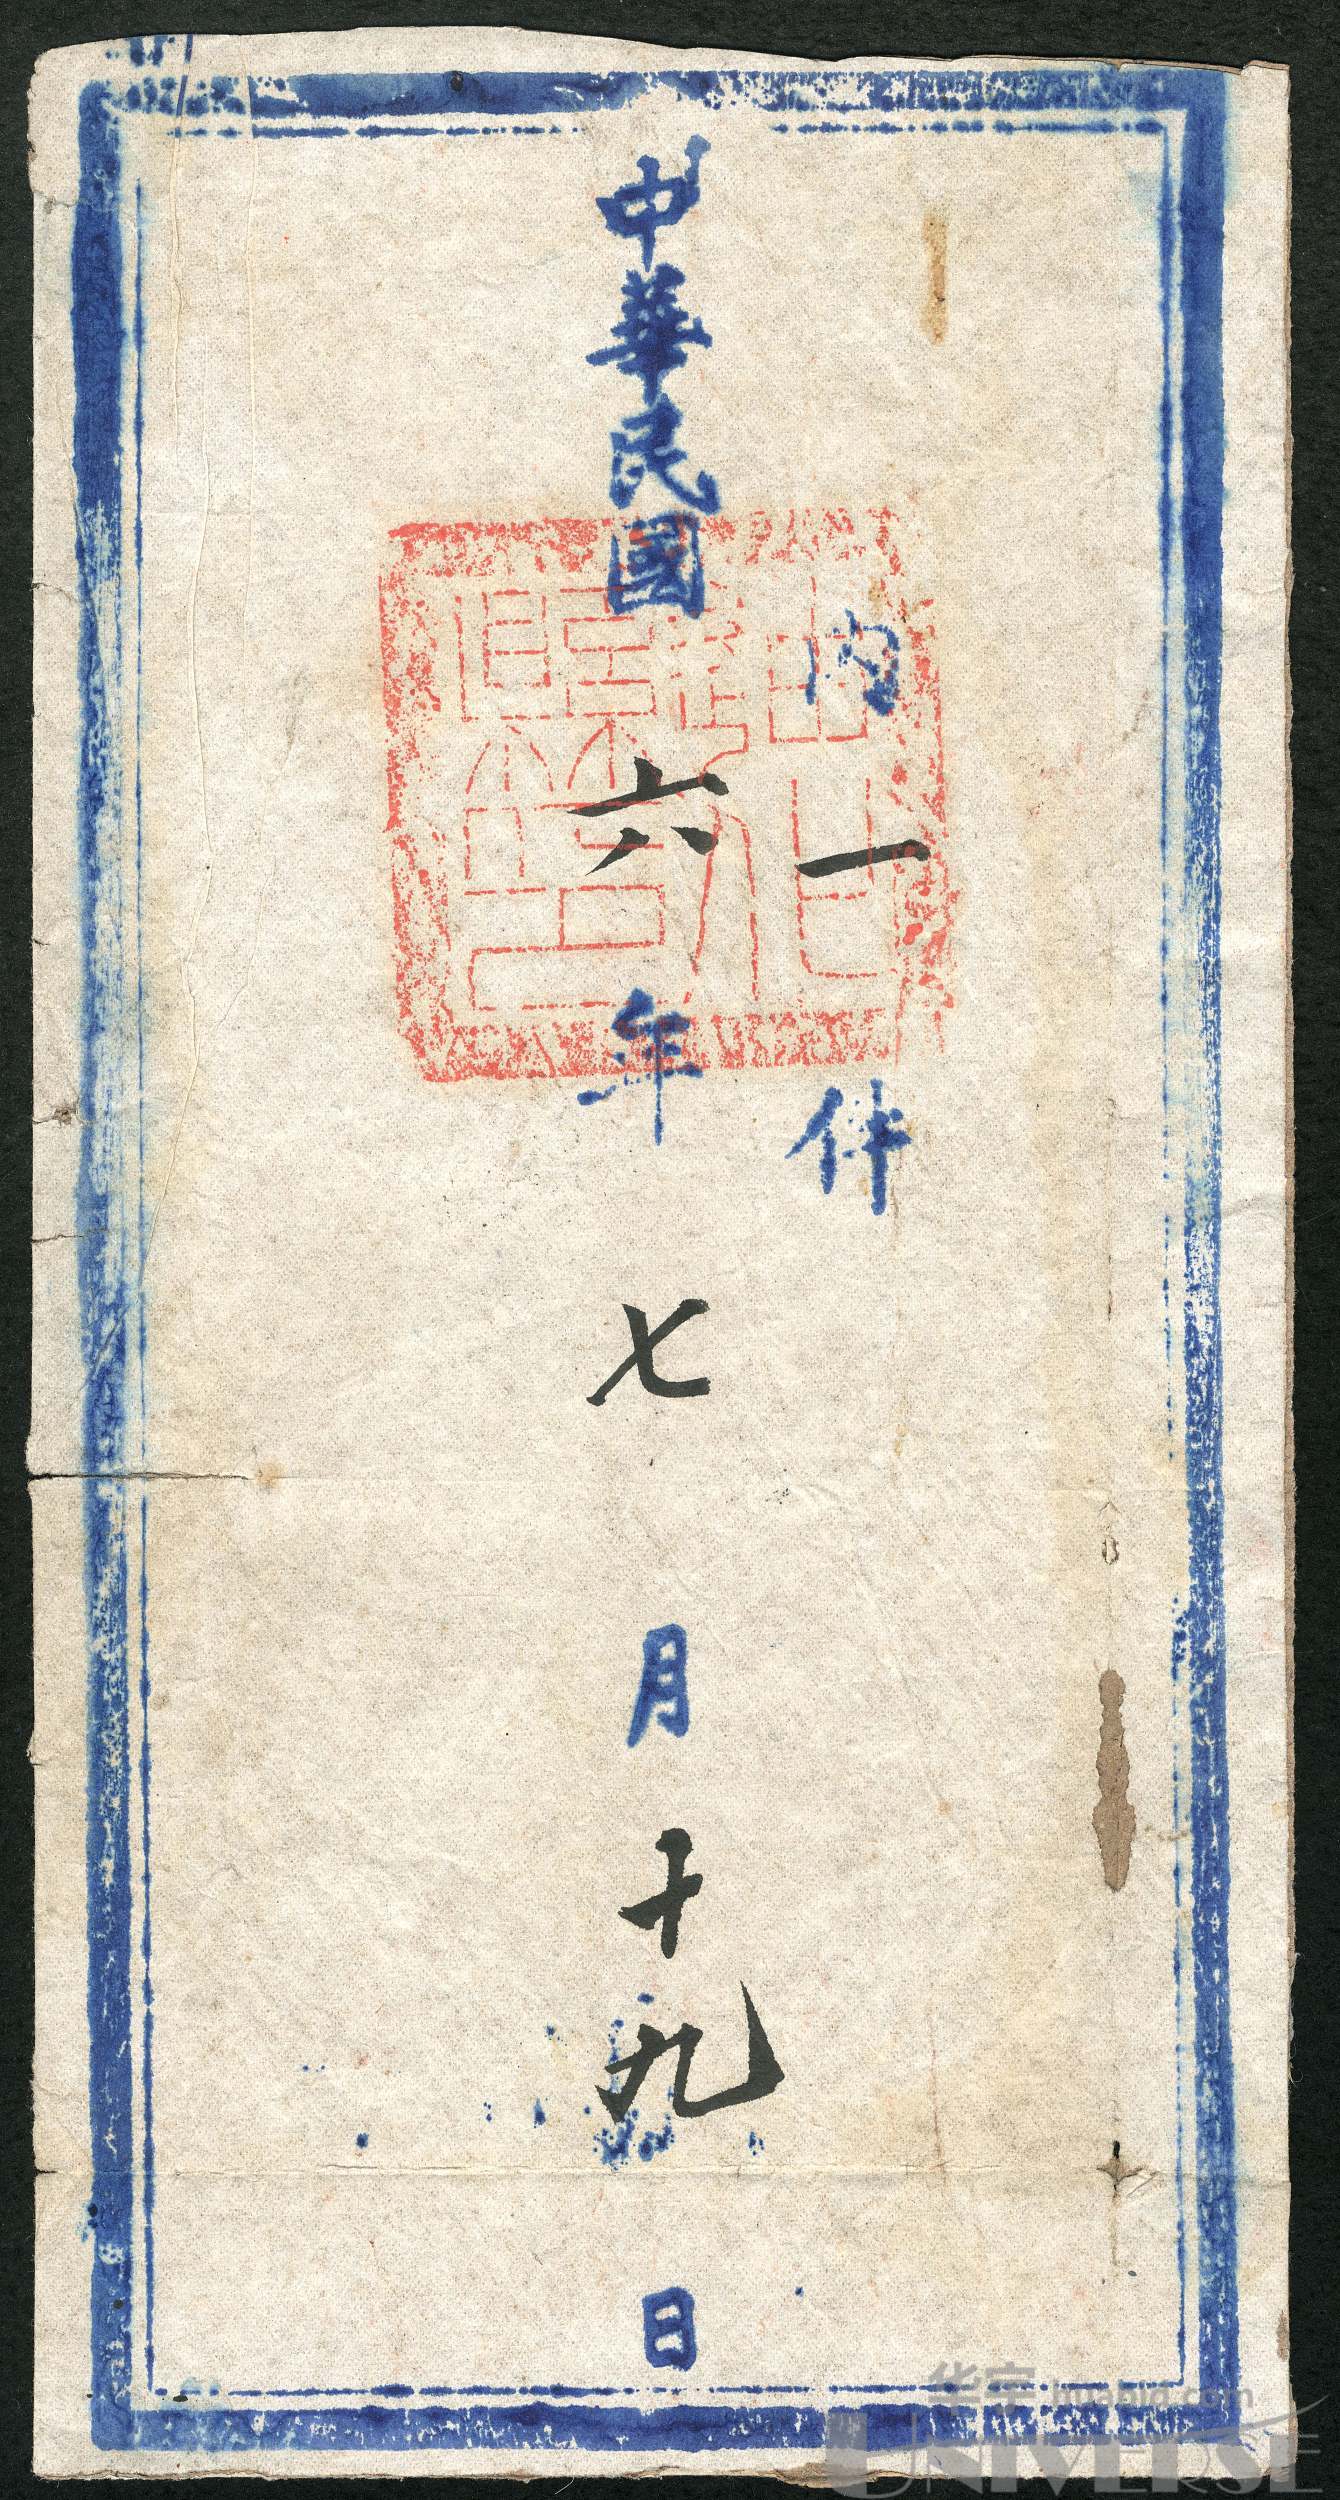 內一件
中華民國六年七月十九日
华宇 huabid.com
UNIVERSE